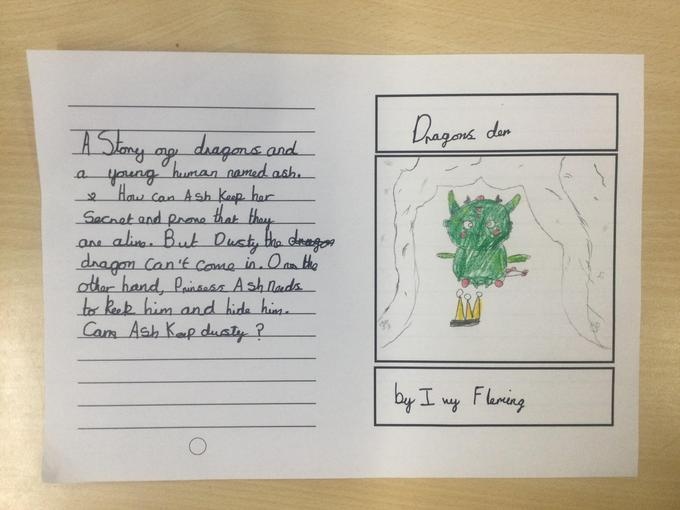 A Story ong dragons and
a young human named ash.
& How can Ash Keep her
Secret and prove that they
are alive. But Dusty the dragon
dragon can't come in. On the
other hand, Prinsess Ash Needs
to keek him and hide him.
Cam Ash Keep dusty ?
Dragons den
by Ivy Fleming